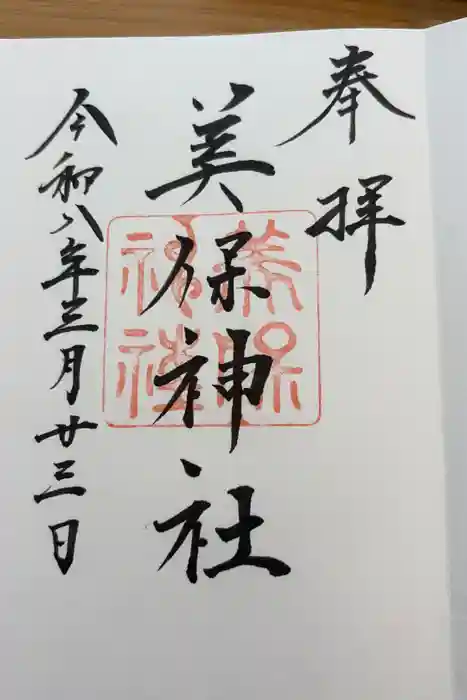 奉拝
美保神社
美保神社
令和八年三月廿三日